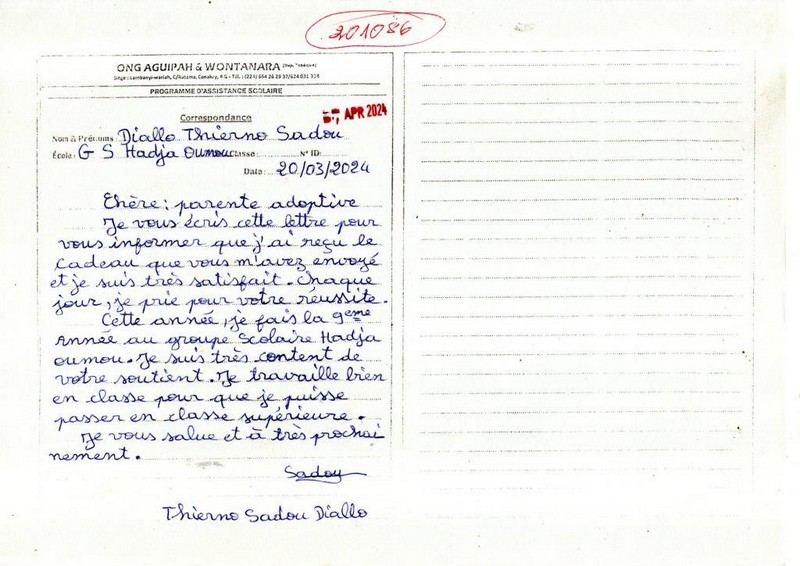 201086
ONG AGUIPAH & WONTANARA (Rep. Tchèque)
PROGRAMME D'ASSISTANCE SCOLAIRE
Correspondance
APR 2024
Nom & Prénoms : Diallo Thierno Sadou
École : G S Hadja Oumou Classe : N° ID:
Date : 20/03/2024
Chère : parente adoptive
Je vous écris cette lettre pour
vous informer que j'ai reçu le
Cadeau que vous m'avez envoyé
et je suis très satisfait. Chaque
jour, je prie pour votre réussite.
Cette année, je fais la 9ème
Année au groupe Scolaire Hadja
oumou. Je suis très content de
votre soutient. Je travaille bien
en classe pour que je puisse
passer en classe supérieure.
Je vous salue et à très prochai
nement.
Sadou
Thierno Sadou Diallo